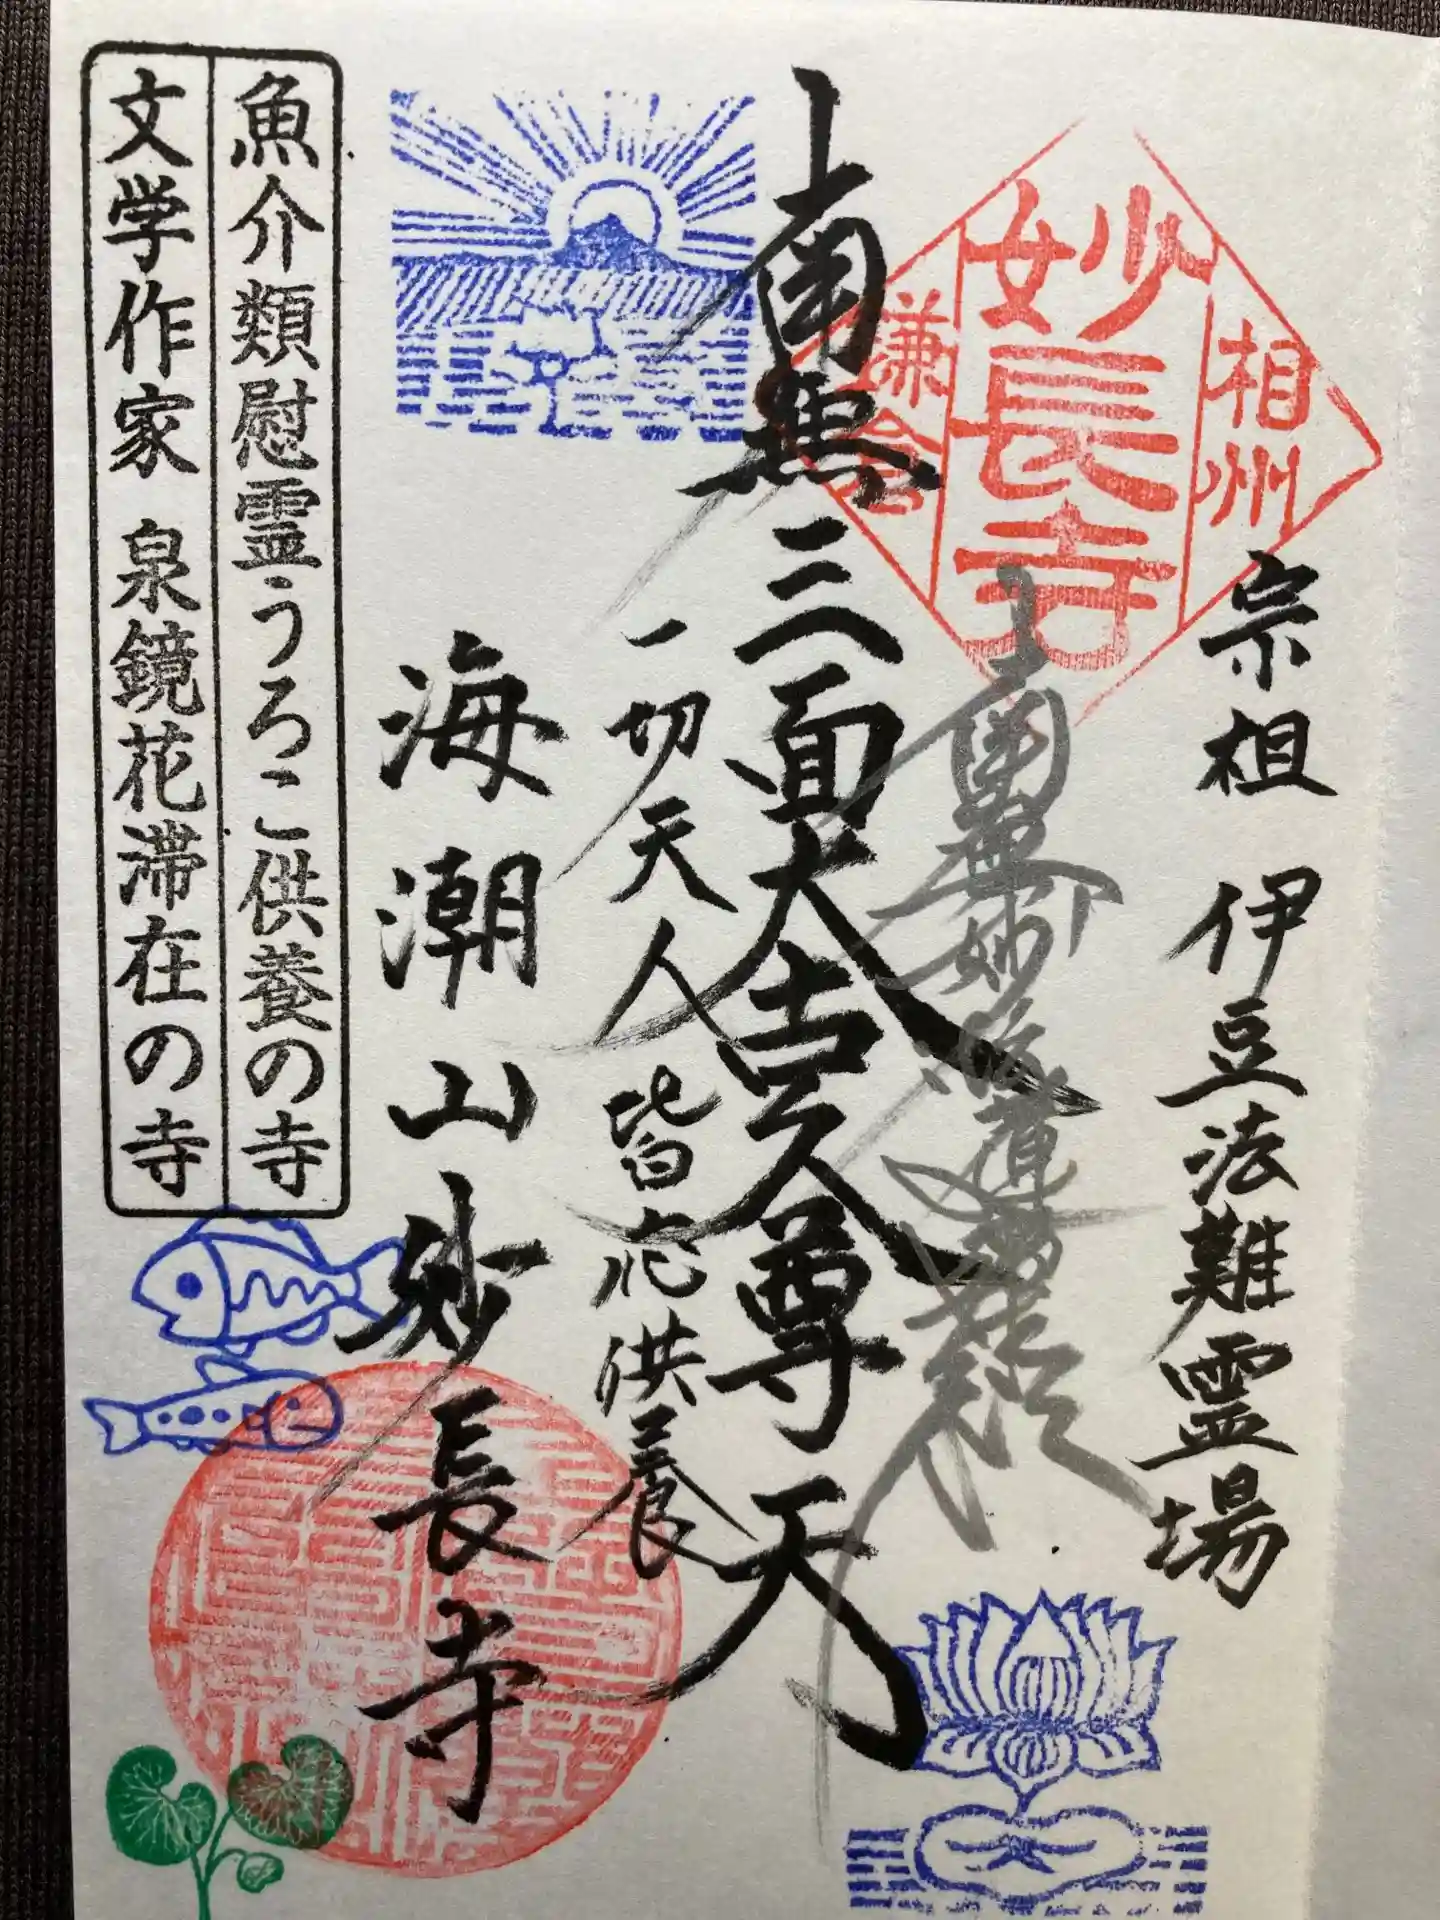 相州
妙長寺
鎌倉
宗祖 伊豆法難霊場
南無妙法蓮華経
南無三面大黒尊天
一切天人 皆応供養
海潮山 妙長寺
魚介類慰霊うろこ供養の寺
文学作家 泉鏡花滞在の寺